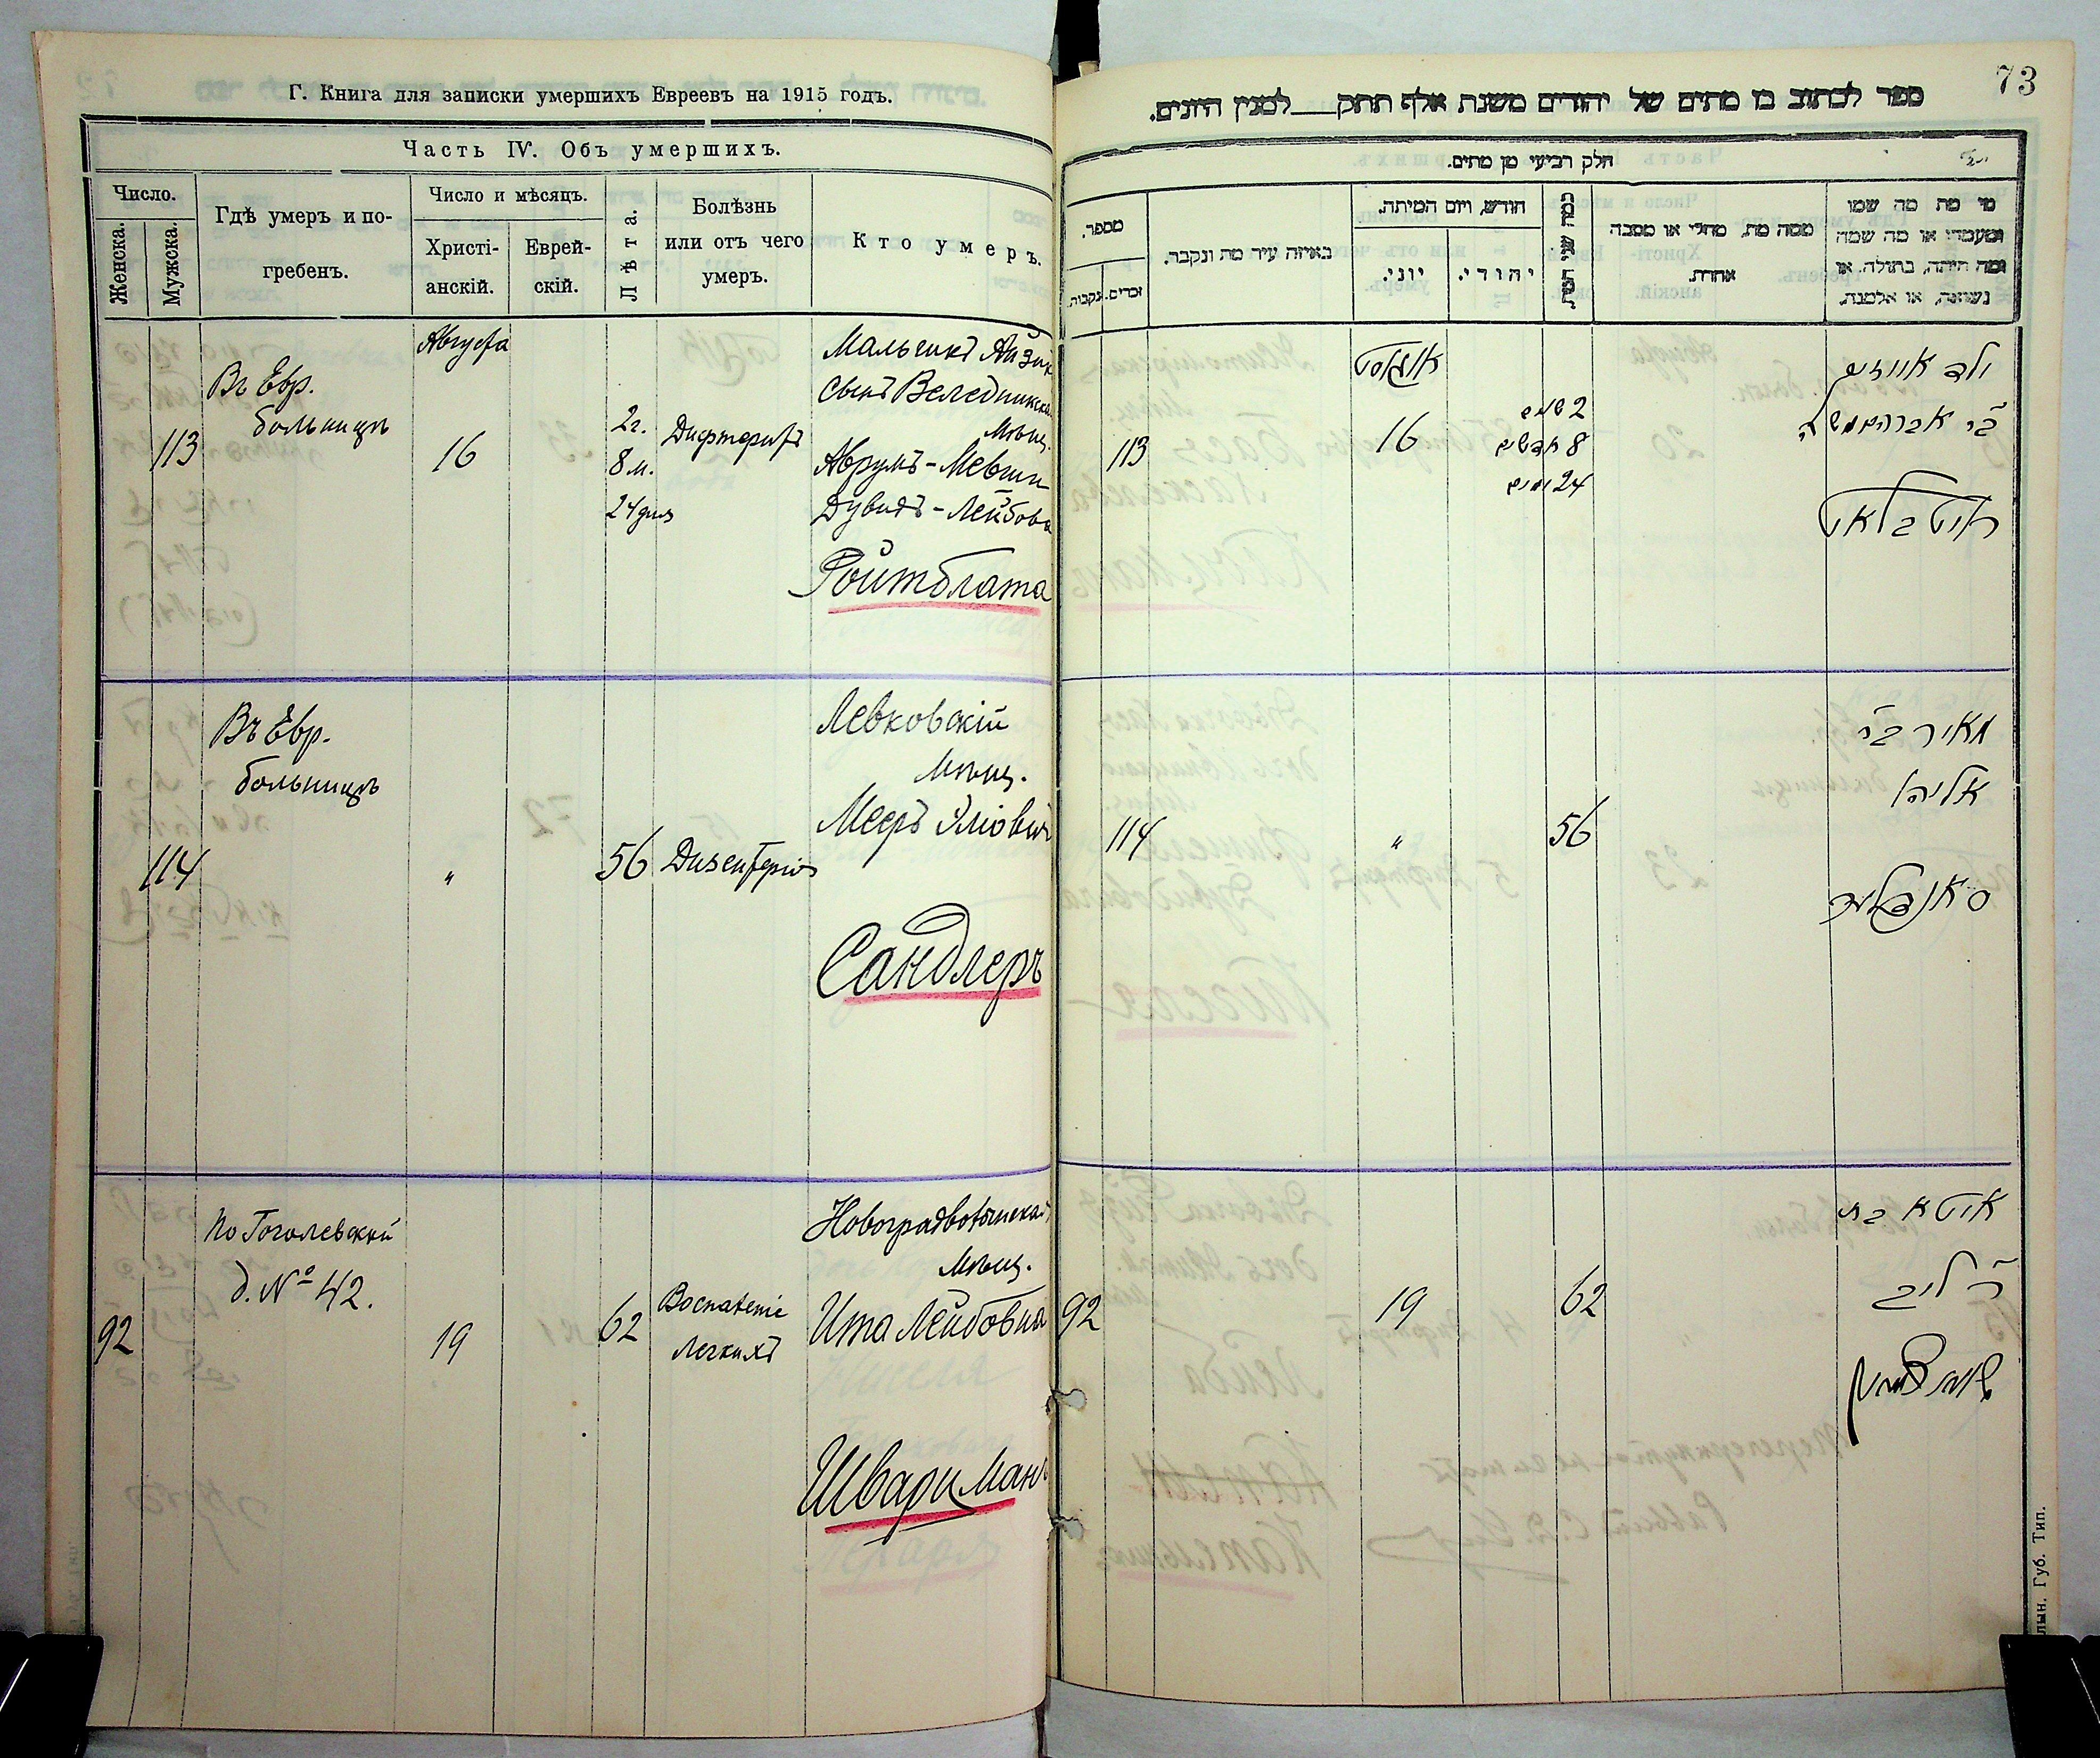 Г. Книга для записки умершихъ Евреевъ на 1915 годъ.
Часть IV. Объ умершихъ.
Число.
Женска.
Мужска.
Гдѣ умеръ и по-
гребенъ.
Число и мѣсяцъ.
Христі-
анскій.
Еврей-
скій.
Лѣта.
Болѣзнь
или отъ чего
умеръ.
Кто умеръ.
113
Въ Евр.
больницѣ
Августа
16
2 г.
8 м.
24 дня
Дифтеритъ
Мальчикъ Айзик
сынъ Веледникска
мѣщ.
Аврумъ-Мевши
Дувидъ-Лейбова
Ройтблата
114
Въ Евр.
больницѣ
"
56
Дизентерія
Левковскій
мѣщ.
Мееръ Эліовичъ
Сандлеръ
92
по Гоголевской
д. № 42.
19
62
Воспаленіе
легкихъ
Новоградволынская
мѣщ.
Ита Лейбовна
Шварцманъ
73
ספר לכתוב בו מתים של יהודים משנת אלף תתק למנין היונים.
חלק רביעי מן מתים.
מספר.
נקבות.
זכרים.
באיזה עיר מת ונקבר.
חודש, ויום המיתה.
יוני.
יהודי.
כמה שני המת
ממה מת, מחלי או מסבה
אחרת.
מי מת מה שמו
ומעמדו או מה שמה
ומה היתה, בתולה, או
נשואה, או אלמנה.
113
אוגוסט
16
2 שנים
8 חדשים
24 ימים
ילד אייזיק
ר' אברהם משה
רויטבלאט
114
"
56
מאיר בר
אליהו
סאנדלער
92
19
62
איטא בת
ר' ליב
שווארצמאן
лын. Губ. Тип.